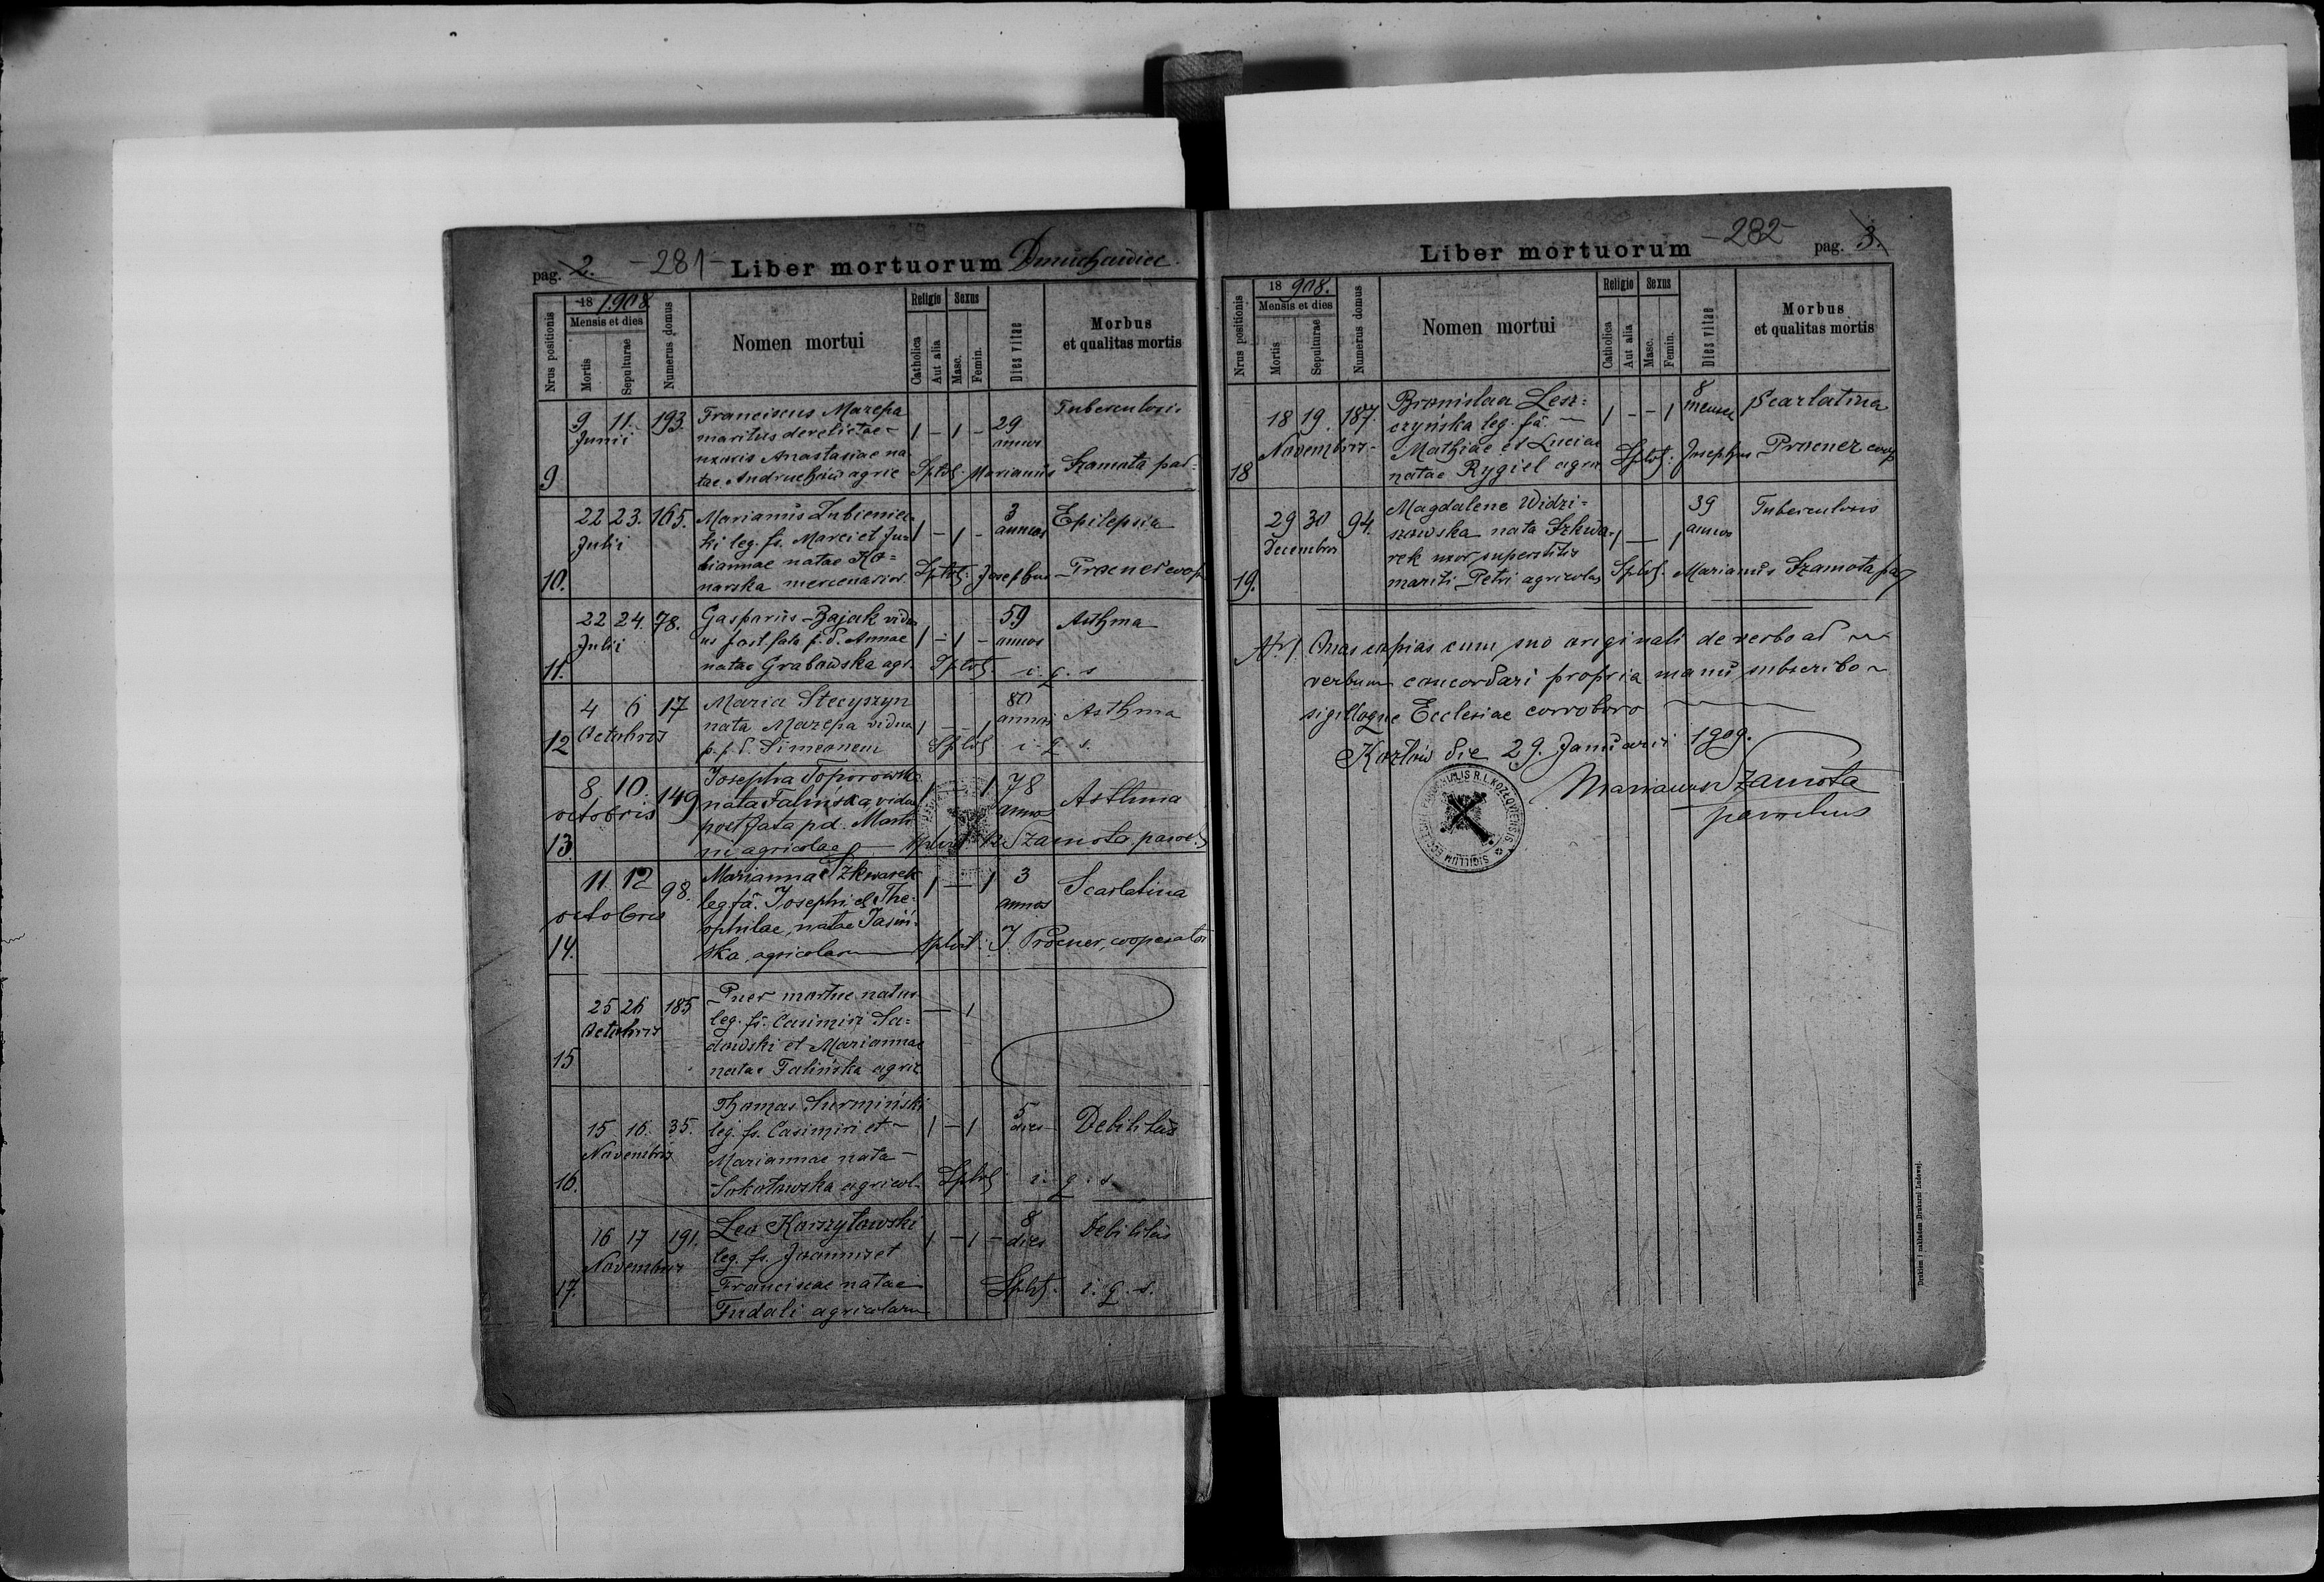 pag. 2. -281- Liber mortuorum Dmuchawiec.
Nrus positionis
18 1908.
Mensis et dies
Mortis
Sepulturae
Numerus domus
Nomen mortui
Religio
Catholica
Aut alia
Sexus
Masc.
Femin.
Dies vitae
Morbus
et qualitas mortis
9 11. 193. Franciscus Mazepa 29 Tuberculosis
Junii maritus derelictae 1 - 1 - annos
uxoris Anastasiae na
9 tae Andruchów agric Spltd. Marianus Szamota par
22 23. 165. Marianus Lubieniec 3 Epilepsia
Julii ki leg. fs. Marci et Ju 1 - 1 - annos
liannae natae Ko=
10. narska mercenarior. Spltd. Josephus Procner coop
22 24. 78. Gasparus Zajak vidu 59 Asthma
Julii us post fata p. d. Annae 1 - 1 - annos
11. natae Grabowska agr. Spltd. i. q. s
4 6 17 Maria Stecyszyn 80 Asthma
Octobris nata Mazepa vidua 1 - 1 annos
12 p. p. d. Simeonem Spltd i. q. s.
8. 10. 149 Josepha Toporowska 1 - 1 78
octobris nata Faliński vidua annos Asthma
post fata p.d. Marti
13. ni agricolae Szamota paroch
11. 12 98. Marianna Szkwarek 1 - 1 3 Scarlatina
octobris leg fa. Josephi et The= annos
ophilae, natae Jasiń=
14. ska, agricolarum J. Procner, cooperator
25 26 185 Puer mortue natus
Octobris leg. fs. Casimiri Sa= - 1
dowski et Mariannae
15 natae Falińska agric
Thomas Surmiński 5
15 16. 35. leg. fs. Casimiri et 1 - 1 dies Debilitas
Novembris Mariannae nata
16. Sokołowska agricol. Spltd i. q. s
16 17 191. Leo Karszytowski 1 - 1 - 8 dies Debilitas
Novembris leg. fs. Joannis et
17. Franciscae natae Spltd. i. q. s.
Fudali agricolarum
Liber mortuorum -282- pag. 3.
Nrus positionis
18 908.
Mensis et dies
Mortis
Sepulturae
Numerus domus
Nomen mortui
Religio
Catholica
Aut alia
Sexus
Masc.
Femin.
Dies vitae
Morbus
et qualitas mortis
18 19. 187. Bronislaa Lesz= 8 Scarlatina
Novembris czyńska leg. fa. 1 - - 1 menses
Mathiae et Luciae
18 natae Rygiel agric Spltd. Josephus Procner coop
29 30 94. Magdalene Widzi= 39 Tuberculosis
Decembris szowska nata Szkwa 1 - 1 annos
rek uxor superstitis
19. mariti Petri agricolae Spltd. Marianus Szamota par
Has copias cum suo originali de verbo ad
verbum concordari propria manu subscribo
sigilloque Ecclesiae corroboro
Kozłów die 29. Januarii 1909.
Marianus Szamota
parochus
SIGILLUM ECCLESIAE PAROCHIALIS R. L. KOZŁOVIENSIS
Drukiem i nakładem Drukarni Ludowej.